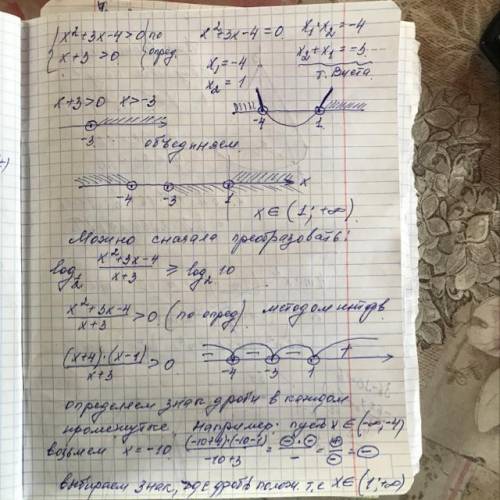 { x²+3x-4>0 по x²+3x-4=0 x₁·x₂=-4
{ x+3>0 опред. x₁=-4 x₂+x₁=-3
x₂=1 т. Виета.
x+3>0 x>-3
-3 -4 1
объединяем
-4 -3 1 x
x∈(1;+∞)
Можно сначала преобразовать:
log₂ (x²+3x-4)/(x+3) ≥ log₂ 10
(x²+3x-4)/(x+3) >0 (по опред). методом интдв
((x+4)·(x-1))/(x+3) >0 — — — +
-4 -3 1
определяем знак дроби в каждом
промежутке. Например: пусть x∈(-∞;-4)
возьмем x=-10 ((-10+4)·(-10-1))/(-10+3) = (⊖·⊖)/- = ⊕/⊖ = ⊖
выбираем знак, где дробь полож. т.е x∈(1;+∞)